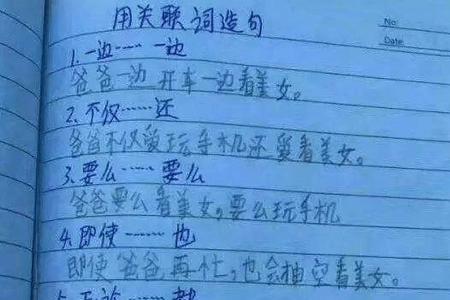 用关联词造句
No.
Date
1.一边……一边
爸爸一边开车一边看美女。
2.不仅……还
爸爸不仅爱玩手机还爱看美女。
3.要么……要么
爸爸要么看美女,要么玩手机
4.即使……也
即使爸爸再忙,也会抽空看美女。